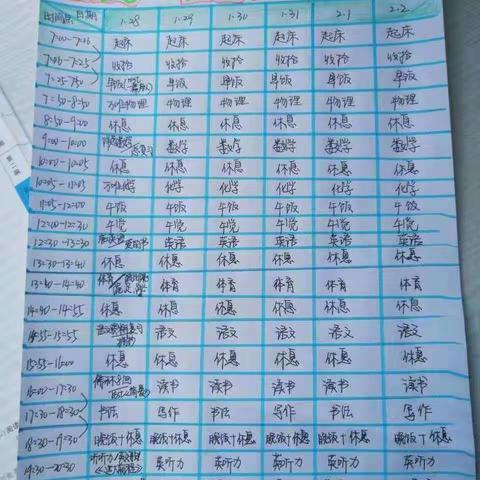 时间 日期 1.28 1.29 1.30 1.31 2.1 2.2
7:00-7:05 起床 起床 起床 起床 起床 起床
7:05-7:25 收拾 收拾 收拾 收拾 收拾 收拾
7:25-7:50 早饭 早饭 早饭 早饭 早饭 早饭
7:50-8:50 物理 物理 物理 物理 物理 物理
8:50-9:00 休息 休息 休息 休息 休息 休息
9:00-10:00 数学 数学 数学 数学 数学 数学
10:00-10:05 休息 休息 休息 休息 休息 休息
10:05-11:05 化学 化学 化学 化学 化学 化学
11:05-12:00 午饭 午饭 午饭 午饭 午饭 午饭
12:00-12:30 午觉 午觉 午觉 午觉 午觉 午觉
12:30-13:30 英语 英语 英语 英语 英语
13:30-13:40 休息 休息 休息 休息 休息 休息
13:40-14:40 体育 体育 体育 体育 体育 体育
14:40-14:55 休息 休息 休息 休息 休息 休息
14:55-15:55 语文 语文 语文 语文 语文 语文
15:55-16:00 休息 休息 休息 休息 休息 休息
16:00-17:30 读书 读书 读书 读书 读书
17:30-18:30 书法 写作 书法 写作 书法 写作
18:30-19:30 晚饭+休息 晚饭+休息 晚饭+休息 晚饭+休息 晚饭+休息 晚饭+休息
19:30-20:30 英听力 英听力 英听力 英听力 英听力